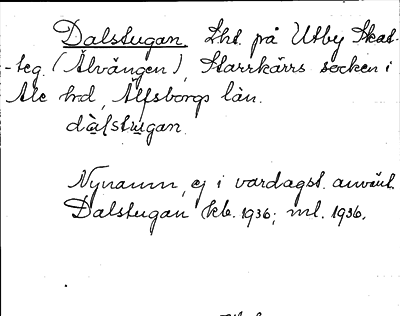 Dalstugan. Lht. på Utby Skat-
-teg. (Älvängen), Starrkärrs socken i
Ale hd, Älfsborgs län.
dàlstugan.
Nynamn, ej i vardagsl. använt.
Dalstugan kb. 1936; ml. 1936.